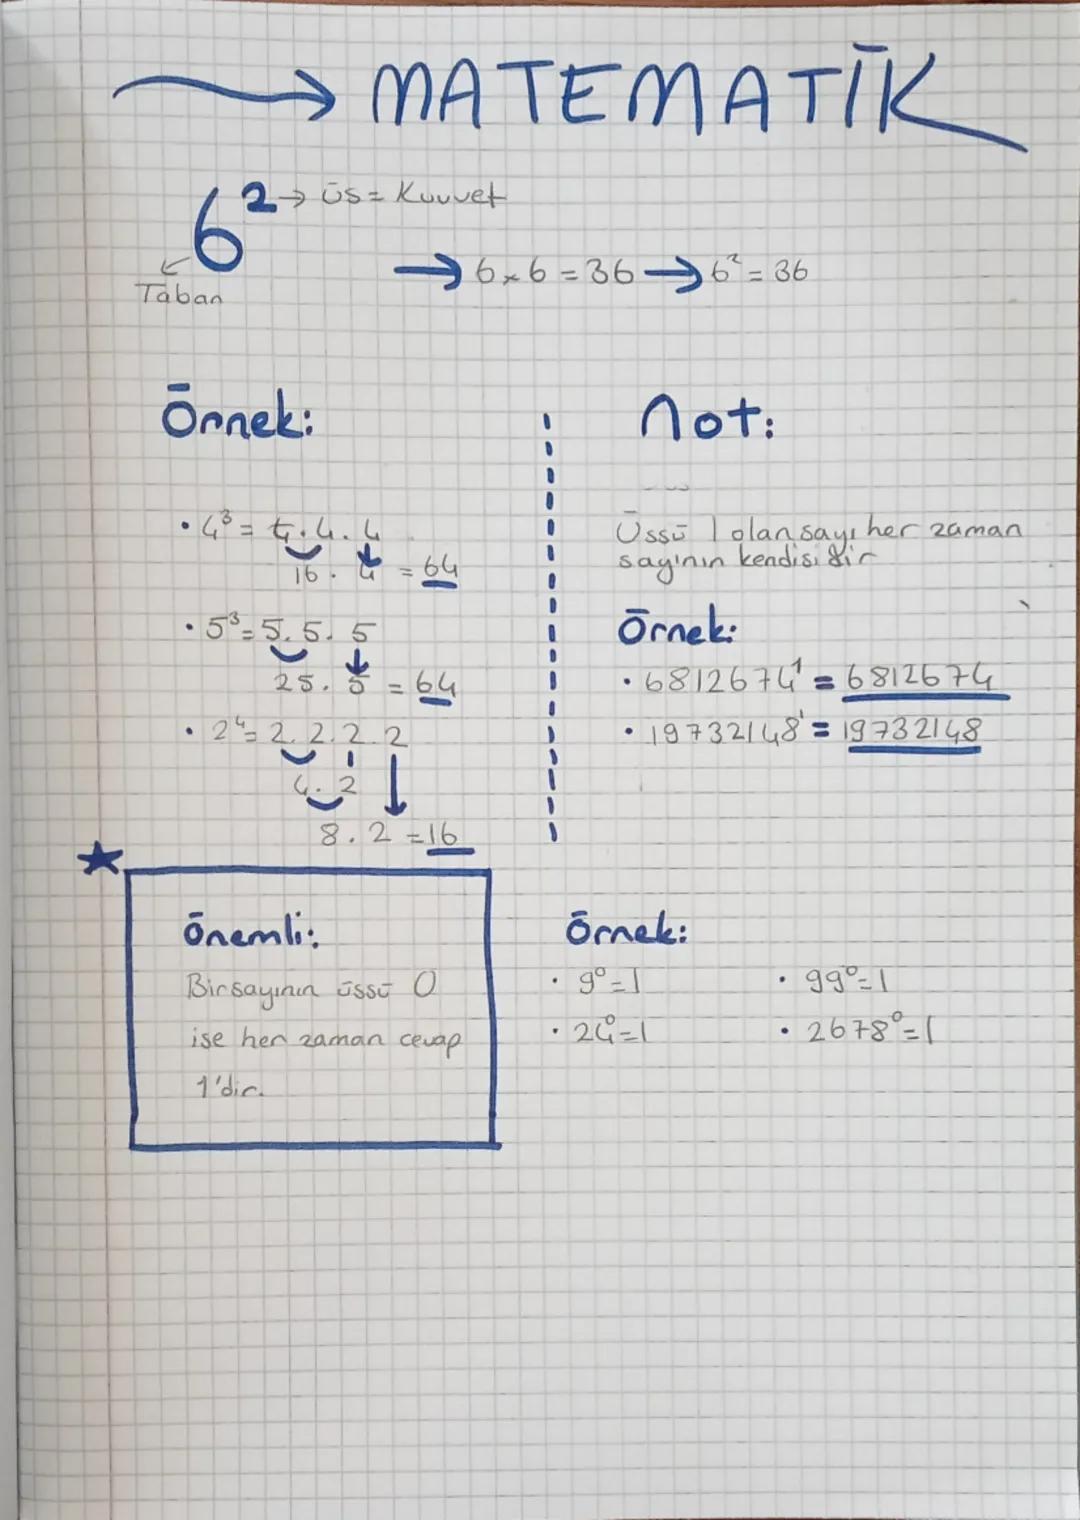 → MATEMATİK
6² → üs = Kuvvet
→ 6 × 6 = 36 → 6² = 36
Taban
Örnek:
• 4³ = 4 . 4 . 4
16 . 4 = 64
• 5³ = 5 . 5 . 5
25 . 5 = 64
• 2⁴ = 2 . 2 . 2 . 2
4 . 2
8 . 2 = 16
Not:
Üssü 1 olan sayı her zaman
sayının kendisidir
Örnek:
• 6812674¹ = 6812674
• 19732148¹ = 19732148
Önemli:
Bir sayının üssü 0
ise her zaman cevap
1'dir.
Örnek:
• 9⁰ = 1
• 99⁰ = 1
• 24⁰ = 1
• 2678⁰ = 1